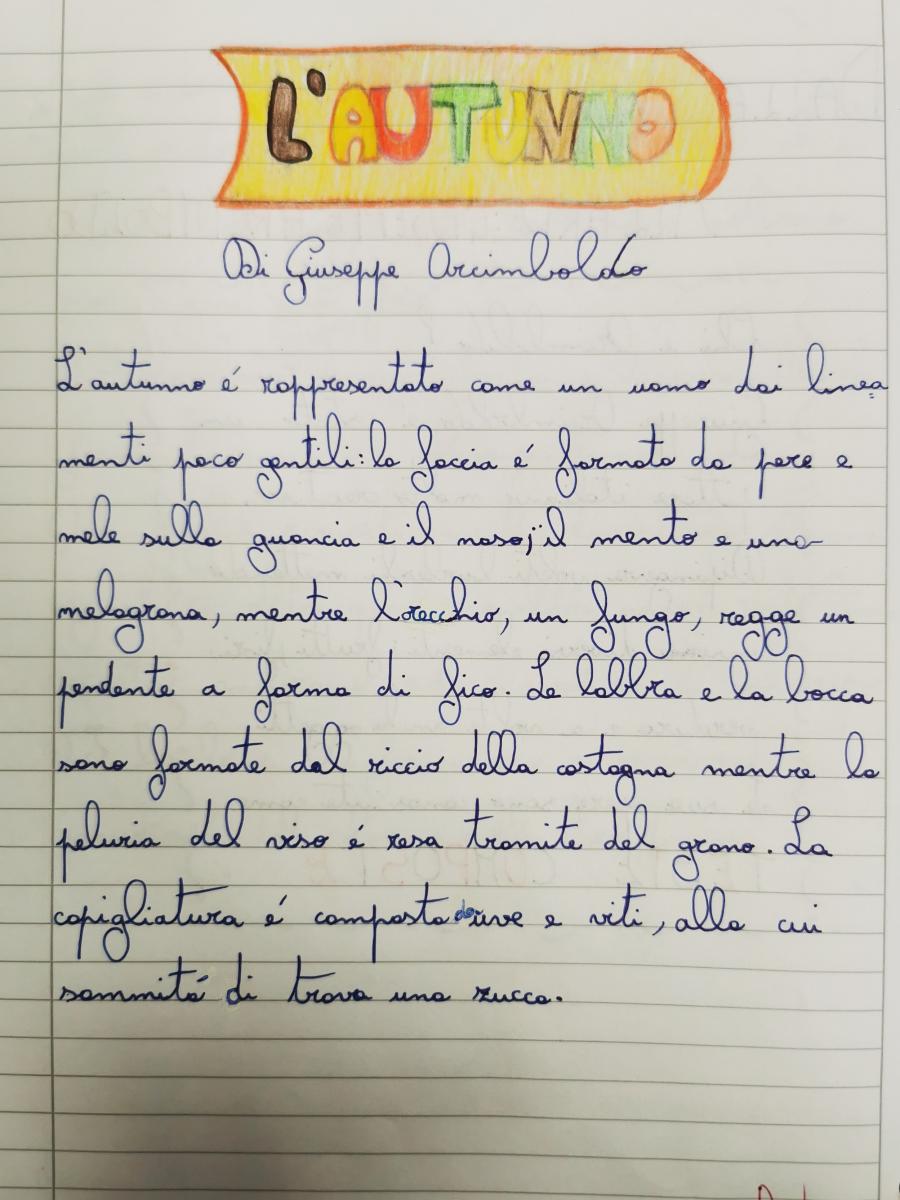 L'AUTUNNO
Di Giuseppe Arcimboldo
L'autunno é rappresentato come un uomo dai linea
menti poco gentili: la faccia é formata da pere e
mele sulla guancia e il naso; il mento e una
melagrana, mentre l'orecchio, un fungo, regge un
pendente a forma di fico. Le labbra e la bocca
sono formate dal riccio della castagna mentre la
peluria del viso é resa tramite del grano. La
capigliatura é composta da uve e viti, alla cui
sommitá di trova una zucca.